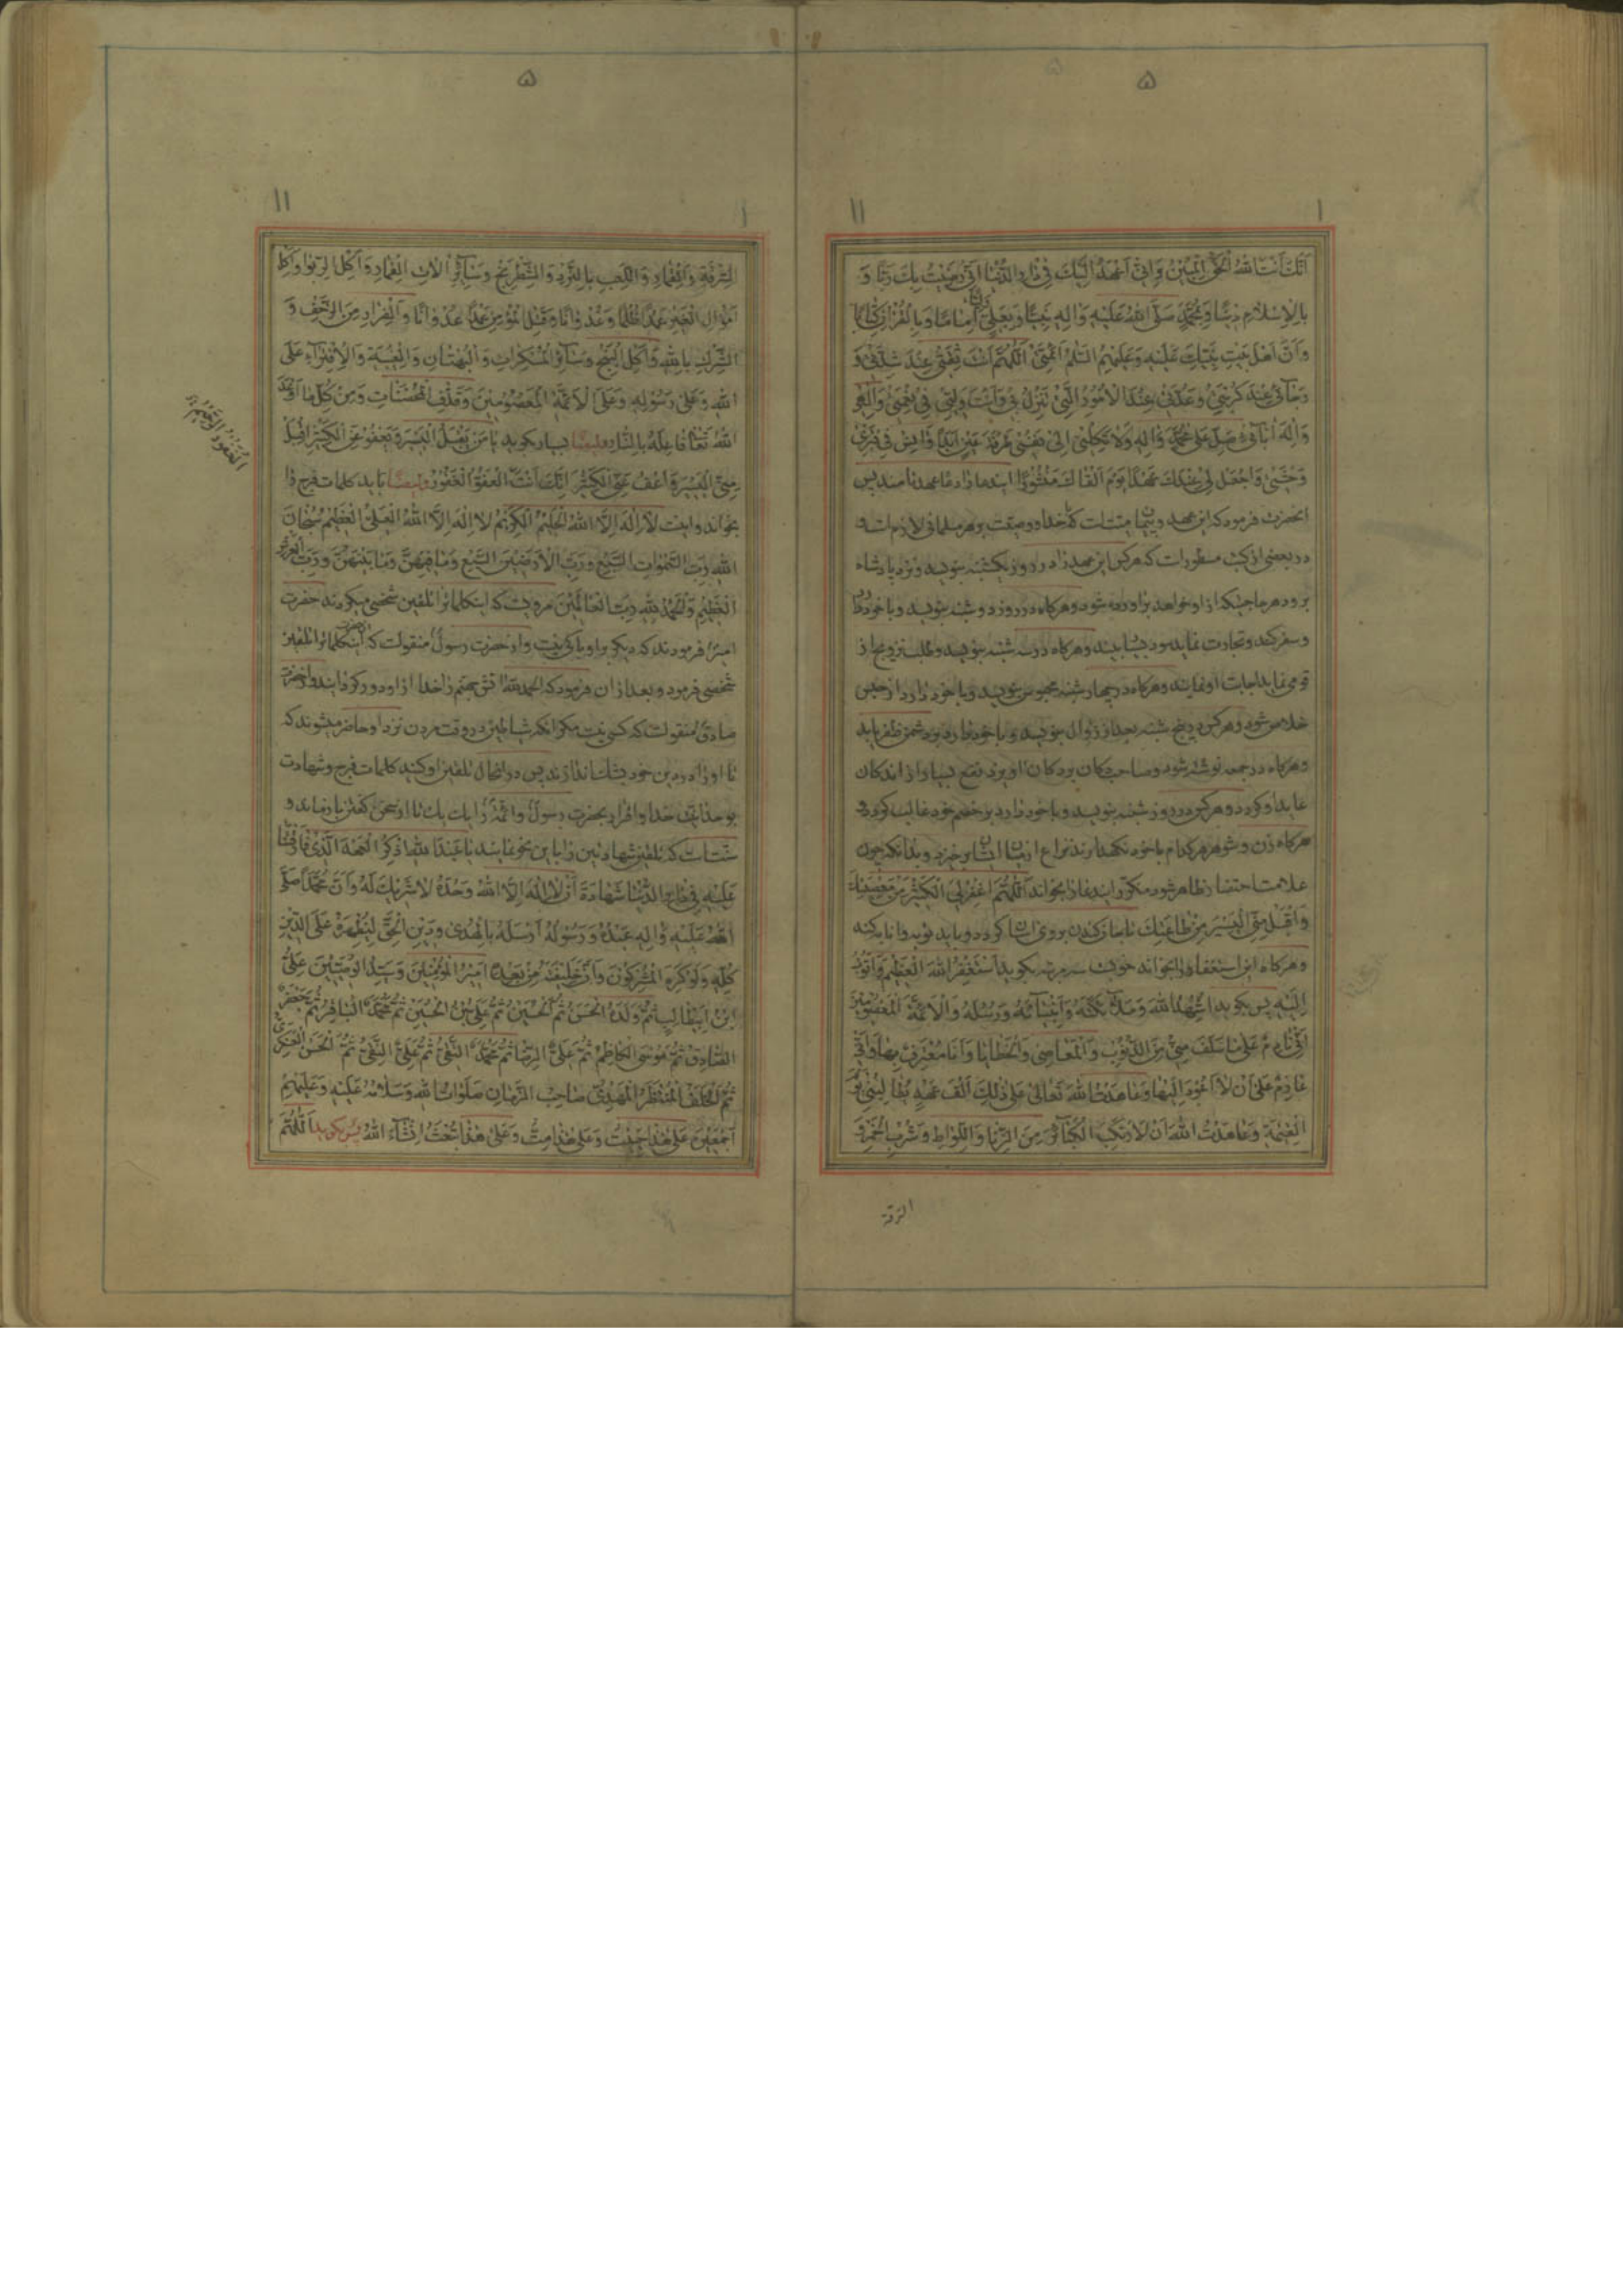 ۵
۱ ۱۱
اَنَّكَ اَنْتَ اللهُ الْحَقُّ الْمُبِيْنُ وَاِنّى اَعْهَدُ اِلَيْكَ فِى دارِ الدُّنْيا اَنّى رَضِيْتُ بِكَ رَبًّا وَ
بِالْاِسْلامِ دِيْنًا وَبِمُحَمَّدٍ صَلَّى اللهُ عَلَيْهِ وَالِهِ نَبِيًّا وَبِعَلِىٍّ اِمامًا وَبِالْقُرْانِ كِتابًا
وَاَنَّ اَهْلَ بَيْتِ نَبِيِّكَ عَلَيْهِ وَعَلَيْهِمُ السَّلامُ اَئِمَّتى اَللّهُمَّ اَنْتَ ثِقَتى عِنْدَ شِدَّتى وَ
رَجآئى عِنْدَ كُرْبَتى وَعُدَّتى عِنْدَ الْاُمُوْرِ الَّتى تَنْزِلُ بى وَاَنْتَ وَلِيّى فى نِعْمَتى وَاِلهى
وَاِلهَ ابآئى صَلِّ عَلى مُحَمَّدٍ وَالِهِ وَلا تَكِلْنى اِلى نَفْسى طَرْفَةَ عَيْنٍ اَبَدًا وَانِسْ فى قَبْرى
وَحْشَتى وَاجْعَلْ لى عِنْدَكَ عَهْدًا يَوْمَ اَلْقاكَ مَنْشُوْرًا ايندعا را دعا عهدنامند پس
انحضرت فرمود كه اين عهد ميتست كه وصيت بر هر مسلمانى لازم است و
در بعضى از كتب مسطوراست كه هركس اين عهد را در روز يكشنبه بنويسد و نزد پادشاه
برود هر حاجتيكه ازو خواهد براورده شود و هركاه در روز دوشنبه بنويسد و با خود
و سفر كند و تجارت نمايد سود بسيار بيند و هركاه در سه شنبه بنويسد و طلب تزويج از
قومى نمايد اجابت او نمايند و هركاه در چهارشنبه محبوس بنويسد و با خود دارد از حبس
خلاص شود و هركس در پنج شنبه بعد از زوال بنويسد و با خود دارد بر دشمن ظفر يابد
و هركاه در جمعه نوشته شود و صاحب دكان بر دكان اويزد نفع بسيار از اندكان
عايد او كردد و هركس در روز شنبه بنويسد و با خود دارد بر خصم خود غالب كردد و
هركاه زن و شوهر هركدام با خود نكهدارند نزاع از ميان ايشان برخيزد و بدانكه چون
علامت احتضار ظاهر شود مكرر ايندعا را بخواند اَللّهُمَّ اغْفِرْ لِىَ الْكَثِيْرَ مِنْ مَعْصِيَتِكَ
وَاقْبَلْ مِنِّى الْيَسِيْرَ مِنْ طاعَتِكَ تا جان كندن بر وى اسان كردد و بايد توبه و انابه كند
و هركاه اين استغفار را بخواند خوبست سه مرتبه بكويد اَسْتَغْفِرُ اللهَ الْعَظِيْمَ وَاَتُوْبُ
اِلَيْهِ پس بكويد اُشْهِدُ اللهَ وَمَلآئِكَتَهُ وَاَنْبِيآئَهُ وَرُسُلَهُ وَالْاَئِمَّةَ الْمَعْصُوْمِيْنَ
اَنّى نادِمٌ عَلى ما سَلَفَ مِنّى مِنَ الذُّنُوْبِ وَالْمَعاصِى وَالْخَطايا وَاَنا مُعْتَرِفٌ بِها وَاَنّى
عازِمٌ عَلى اَنْ لا اَعُوْدَ اِلَيْها وَعاهَدْتُ اللهَ تَعالى عَلى ذلِكَ اَلْفَ عَهْدٍ يُطالِبُنى يَوْمَ
الْقِيمَةِ وَعاهَدْتُ اللهَ اَنْ لا اَرْتَكِبَ الْكَبآئِرَ مِنَ الزِّنا وَاللِّواطِ وَشُرْبِ الْخَمْرِ وَ
السّرقة
۵
۱ ۱۱
السَّرِقَةِ وَالْقِمارِ وَاللَّعِبِ بِالنَّرْدِ وَالشَّطْرَنْجِ وَسآئِرِ الاتِ الْقِمارِ وَاَكْلِ الرِّبوا وَاَكْلِ
اَمْوالِ الْغَيْرِ عَمْدًا ظُلْمًا وَعُدْوانًا وَقَتْلِ الْمُؤْمِنِ عَمْدًا عُدْوانًا وَالْفِرارِ مِنَ الزَّحْفِ وَ
الشِّرْكِ بِاللهِ وَاَكْلِ وَسآئِرِ الْمُنْكَراتِ وَالْبُهْتانِ وَالْغِيْبَةِ وَالْاِفْتِرآءِ عَلَى
اللهِ وَعَلى رَسُوْلِهِ وَعَلَى الْاَئِمَّةِ الْمَعْصُوْمِيْنَ وَقَذْفِ الْمُحْصَناتِ وَمِنْ كُلِّ ما اَوْعَدَ
اللهُ تَعالى فاعِلَهُ بِالنّارِ وايضًا بسيار بكويد يا مَنْ يَقْبَلُ الْيَسِيْرَ وَيَعْفُوْ عَنِ الْكَثِيْرِ اِقْبَلْ
مِنِّى الْيَسِيْرَ وَاعْفُ عَنِّى الْكَثِيْرَ اِنَّكَ اَنْتَ الْعَفُوُّ الْغَفُوْرُ وايضًا بايد كلمات فرج را
بخواند و اينست لا اِلهَ اِلاَّ اللهُ الْحَلِيْمُ الْكَرِيْمُ لا اِلهَ اِلاَّ اللهُ الْعَلِىُّ الْعَظِيْمُ سُبْحانَ
اللهِ رَبِّ السَّمواتِ السَّبْعِ وَرَبِّ الْاَرَضِيْنَ السَّبْعِ وَما فِيْهِنَّ وَما بَيْنَهُنَّ وَرَبِّ الْعَرْشِ
الْعَظِيْمِ وَالْحَمْدُ لِلّهِ رَبِّ الْعالَمِيْنَ مرويست كه اينكلمات را تلقين شخصى ميكردند حضرت
امير فرمودند كه ديكر بر او باكى نيست و از حضرت رسول منقولست كه اينكلمات را تلقين
شخصى فرمود و بعد از ان فرمود كه الحمد لله اتش جهنم را خدا از او دور كردانيد و از حضرت
صادق منقولست كه كسى نيست مكر انكه شياطين در وقت مردن نزد او حاضر ميشوند كه
تا او را در دين خود بشك اندازند پس در انحال تلقين او كنيد كلمات فرج و شهادت
بوحدانيت خدا و اقرار بحضرت رسول و ائمه را يك يك تا از سخن كفتن باز ماند و
سنت است كه تلقين شهادتين را باين نحو نمايند يا عَبْدَ اللهِ اُذْكُرِ الْعَهْدَ الَّذى فارَقْتَنا
عَلَيْهِ فى دارِ الدُّنْيا شَهادَةَ اَنْ لا اِلهَ اِلاَّ اللهُ وَحْدَهُ لا شَرِيْكَ لَهُ وَاَنَّ مُحَمَّدًا صَلَّى
اللهُ عَلَيْهِ وَالِهِ عَبْدُهُ وَرَسُوْلُهُ اَرْسَلَهُ بِالْهُدى وَدِيْنِ الْحَقِّ لِيُظْهِرَهُ عَلَى الدِّيْنِ
كُلِّهِ وَلَوْ كَرِهَ الْمُشْرِكُوْنَ وَاَنَّ خَلِيْفَتَهُ مِنْ بَعْدِهِ اَمِيْرُ الْمُؤْمِنِيْنَ وَسَيِّدُ الْوَصِيِّيْنَ عَلِىُّ
ابْنُ اَبِيْطالِبٍ ثُمَّ وَلَدُهُ الْحَسَنُ ثُمَّ الْحُسَيْنُ ثُمَّ عَلِىُّ بْنُ الْحُسَيْنِ ثُمَّ مُحَمَّدٌ الْباقِرُ ثُمَّ جَعْفَرٌ
الصّادِقُ ثُمَّ مُوْسَى الْكاظِمُ ثُمَّ عَلِىٌّ الرِّضا ثُمَّ مُحَمَّدٌ التَّقِىُّ ثُمَّ عَلِىٌّ النَّقِىُّ ثُمَّ الْحَسَنُ الْعَسْكَرِىُّ
ثُمَّ الْخَلَفُ الْمُنْتَظَرُ الْمَهْدِىُّ صاحِبُ الزَّمانِ صَلَواتُ اللهِ وَسَلامُهُ عَلَيْهِ وَعَلَيْهِمْ
اَجْمَعِيْنَ عَلى هذا حَيِيْتَ وَعَلى هذا مِتَّ وَعَلى هذا تُبْعَثُ اِنْشآءَ اللهُ پس بكويد اَللّهُمَّ
الْغَفُوْرُ الرَّحِيْمُ